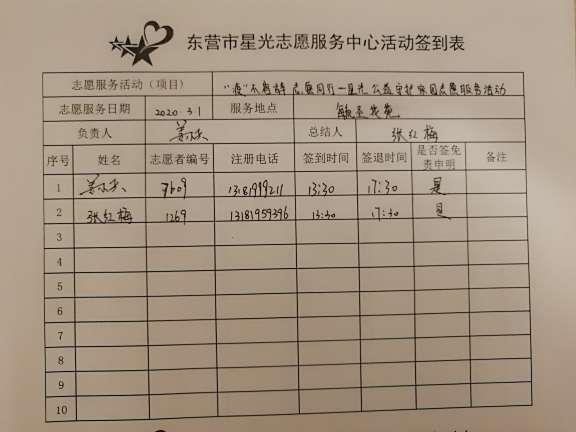 东营市星光志愿服务中心活动签到表
志愿服务活动（项目） "疫"不容辞 志愿同行—星光公益守护家园志愿服务活动
志愿服务日期 2020 3.1 服务地点
负责人 总结人 张红梅
序号 姓名 志愿者编号 注册电话 签到时间 签退时间 是否签免责申明 备注
1 7609 13181999211 13:30 17:30 是
2 张红梅 1269 13181959396 13:30 17:30 是
3
4
5
6
7
8
9
10